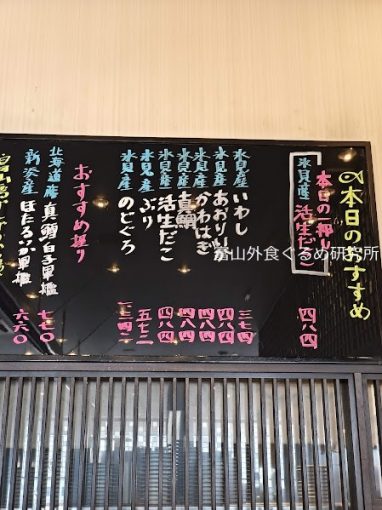 本日のおすすめ
本日の一押し
氷見産 活生だこ 四八四
氷見産 いわし 三七四
氷見産 あおりいか 四八四
氷見産 かわはぎ 四八四
氷見産 真鯛 四八四
氷見産 活生だこ 四八四
氷見産 ぶり 五七二
氷見産 のどぐろ
おすすめ握り
北海道産 真鱈白子軍艦 七七〇
新湊産 ほたるいか軍艦 六六〇
富山外食ぐるめ研究所